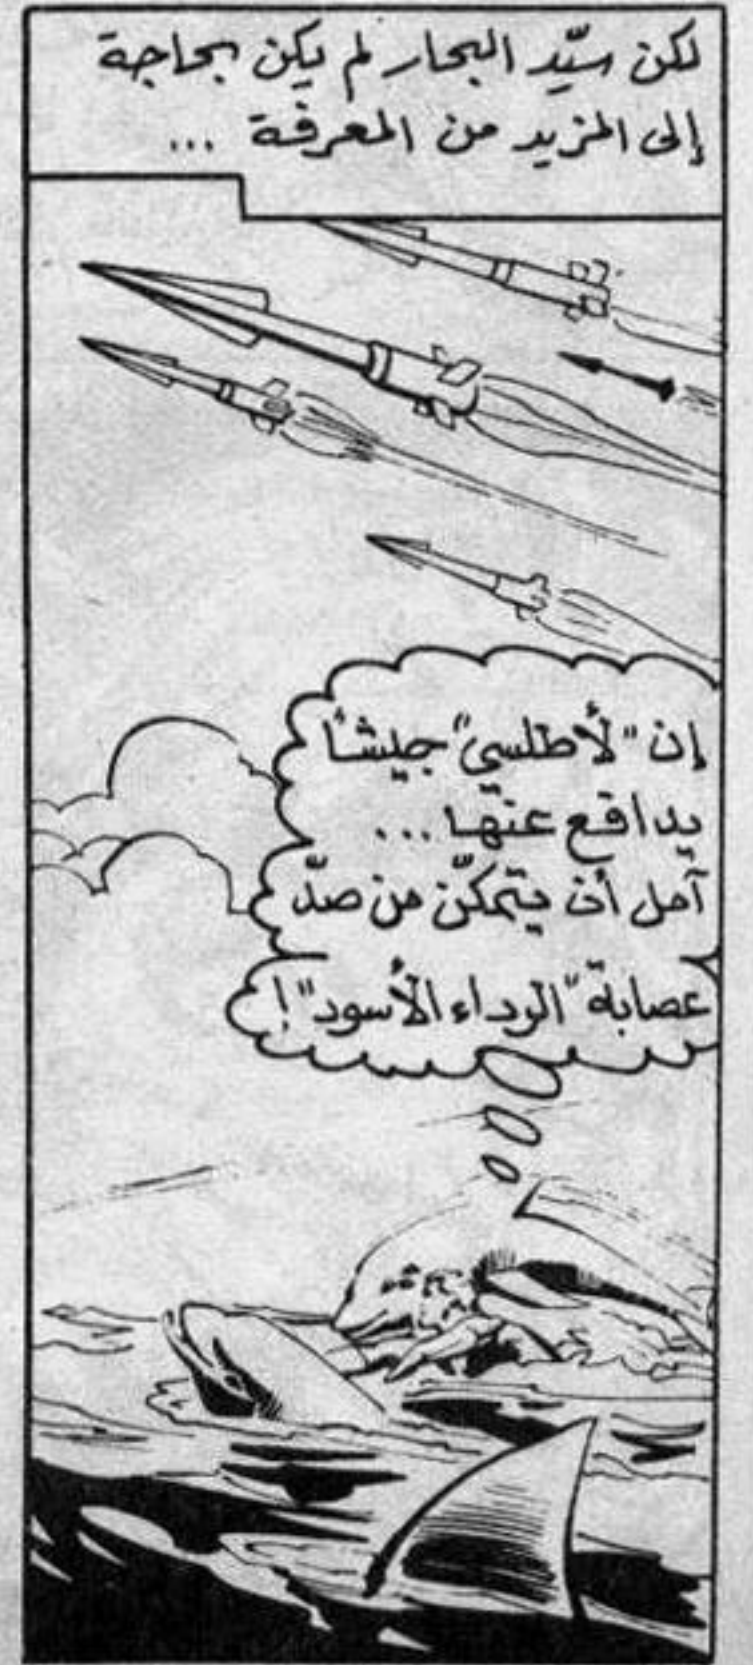 لكن سيّد البحار لم يكن بحاجة
إلى المزيد من المعرفة ...
إن "لأطلسي" جيشاً
يدافع عنها ...
آمل أن يتمكّن من صدّ
عصابة "الرداء الأسود"!